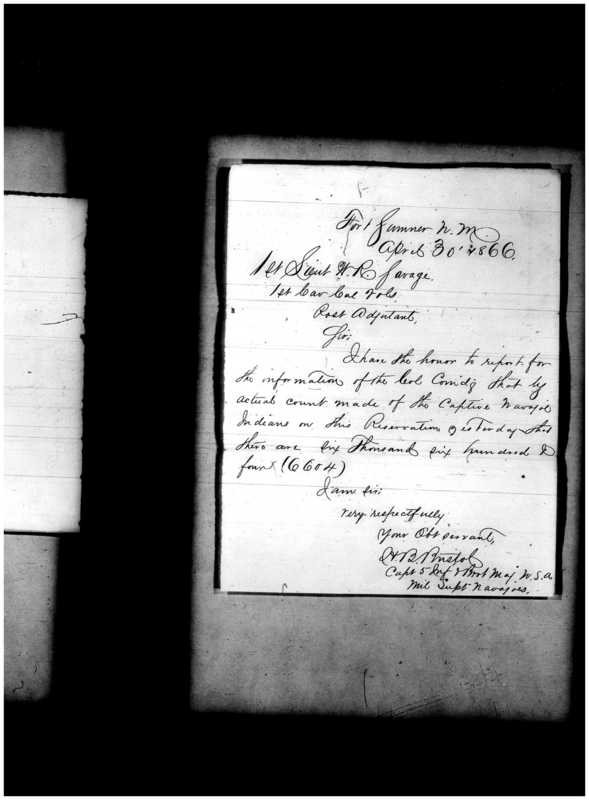 Fort Sumner N. M.
April 30th 1866.
1st Lieut W. R. Savage.
1st Cav Cal Vols.
Post Adjutant,
Sir;
I have the honor to report for
the information of the Col Comd'g that by
actual count made of the Captive Navajoe
Indians on this Reservation yesterday that
there are six Thousand six hundred &
four (6604)
I am sir;
very respectfully
Your Obt servant,
H B Bristol
Capt 5 Inf & Bvt Maj. U. S. A.
Mil Supt Navajoes.